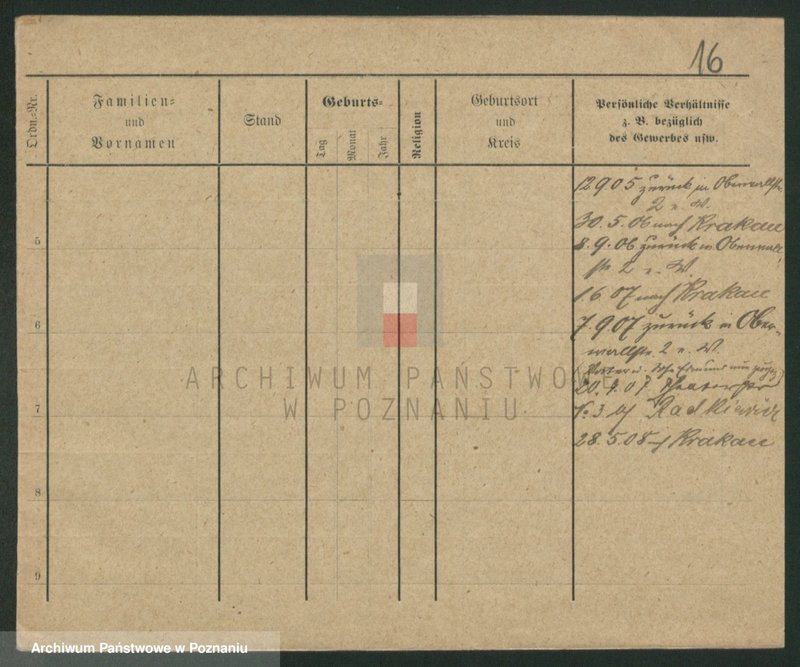 16
Ordn.-Nr.
Familien-
und
Vornamen
Stand
Geburts-
Tag
Monat
Jahr
Religion
Geburtsort
und
Kreis
Persönliche Verhältnisse
z. B. bezüglich
des Gewerbes usw.
12 9 05 zurück in Oberwallstr.
2 v. W.
30. 5. 06 nach Krakau
5
8. 9. 06 zurück in Oberwall
str 2 v. W.
1 6 07 nach Krakau
6
7. 9 07 zurück in Ober-
wallstr. 2 v. W.
20. 9. 07
7
Radkiewicz
28. 5. 08 Krakau
8
9
ARCHIWUM PAŃSTWOWE
W POZNANIU
Archiwum Państwowe w Poznaniu